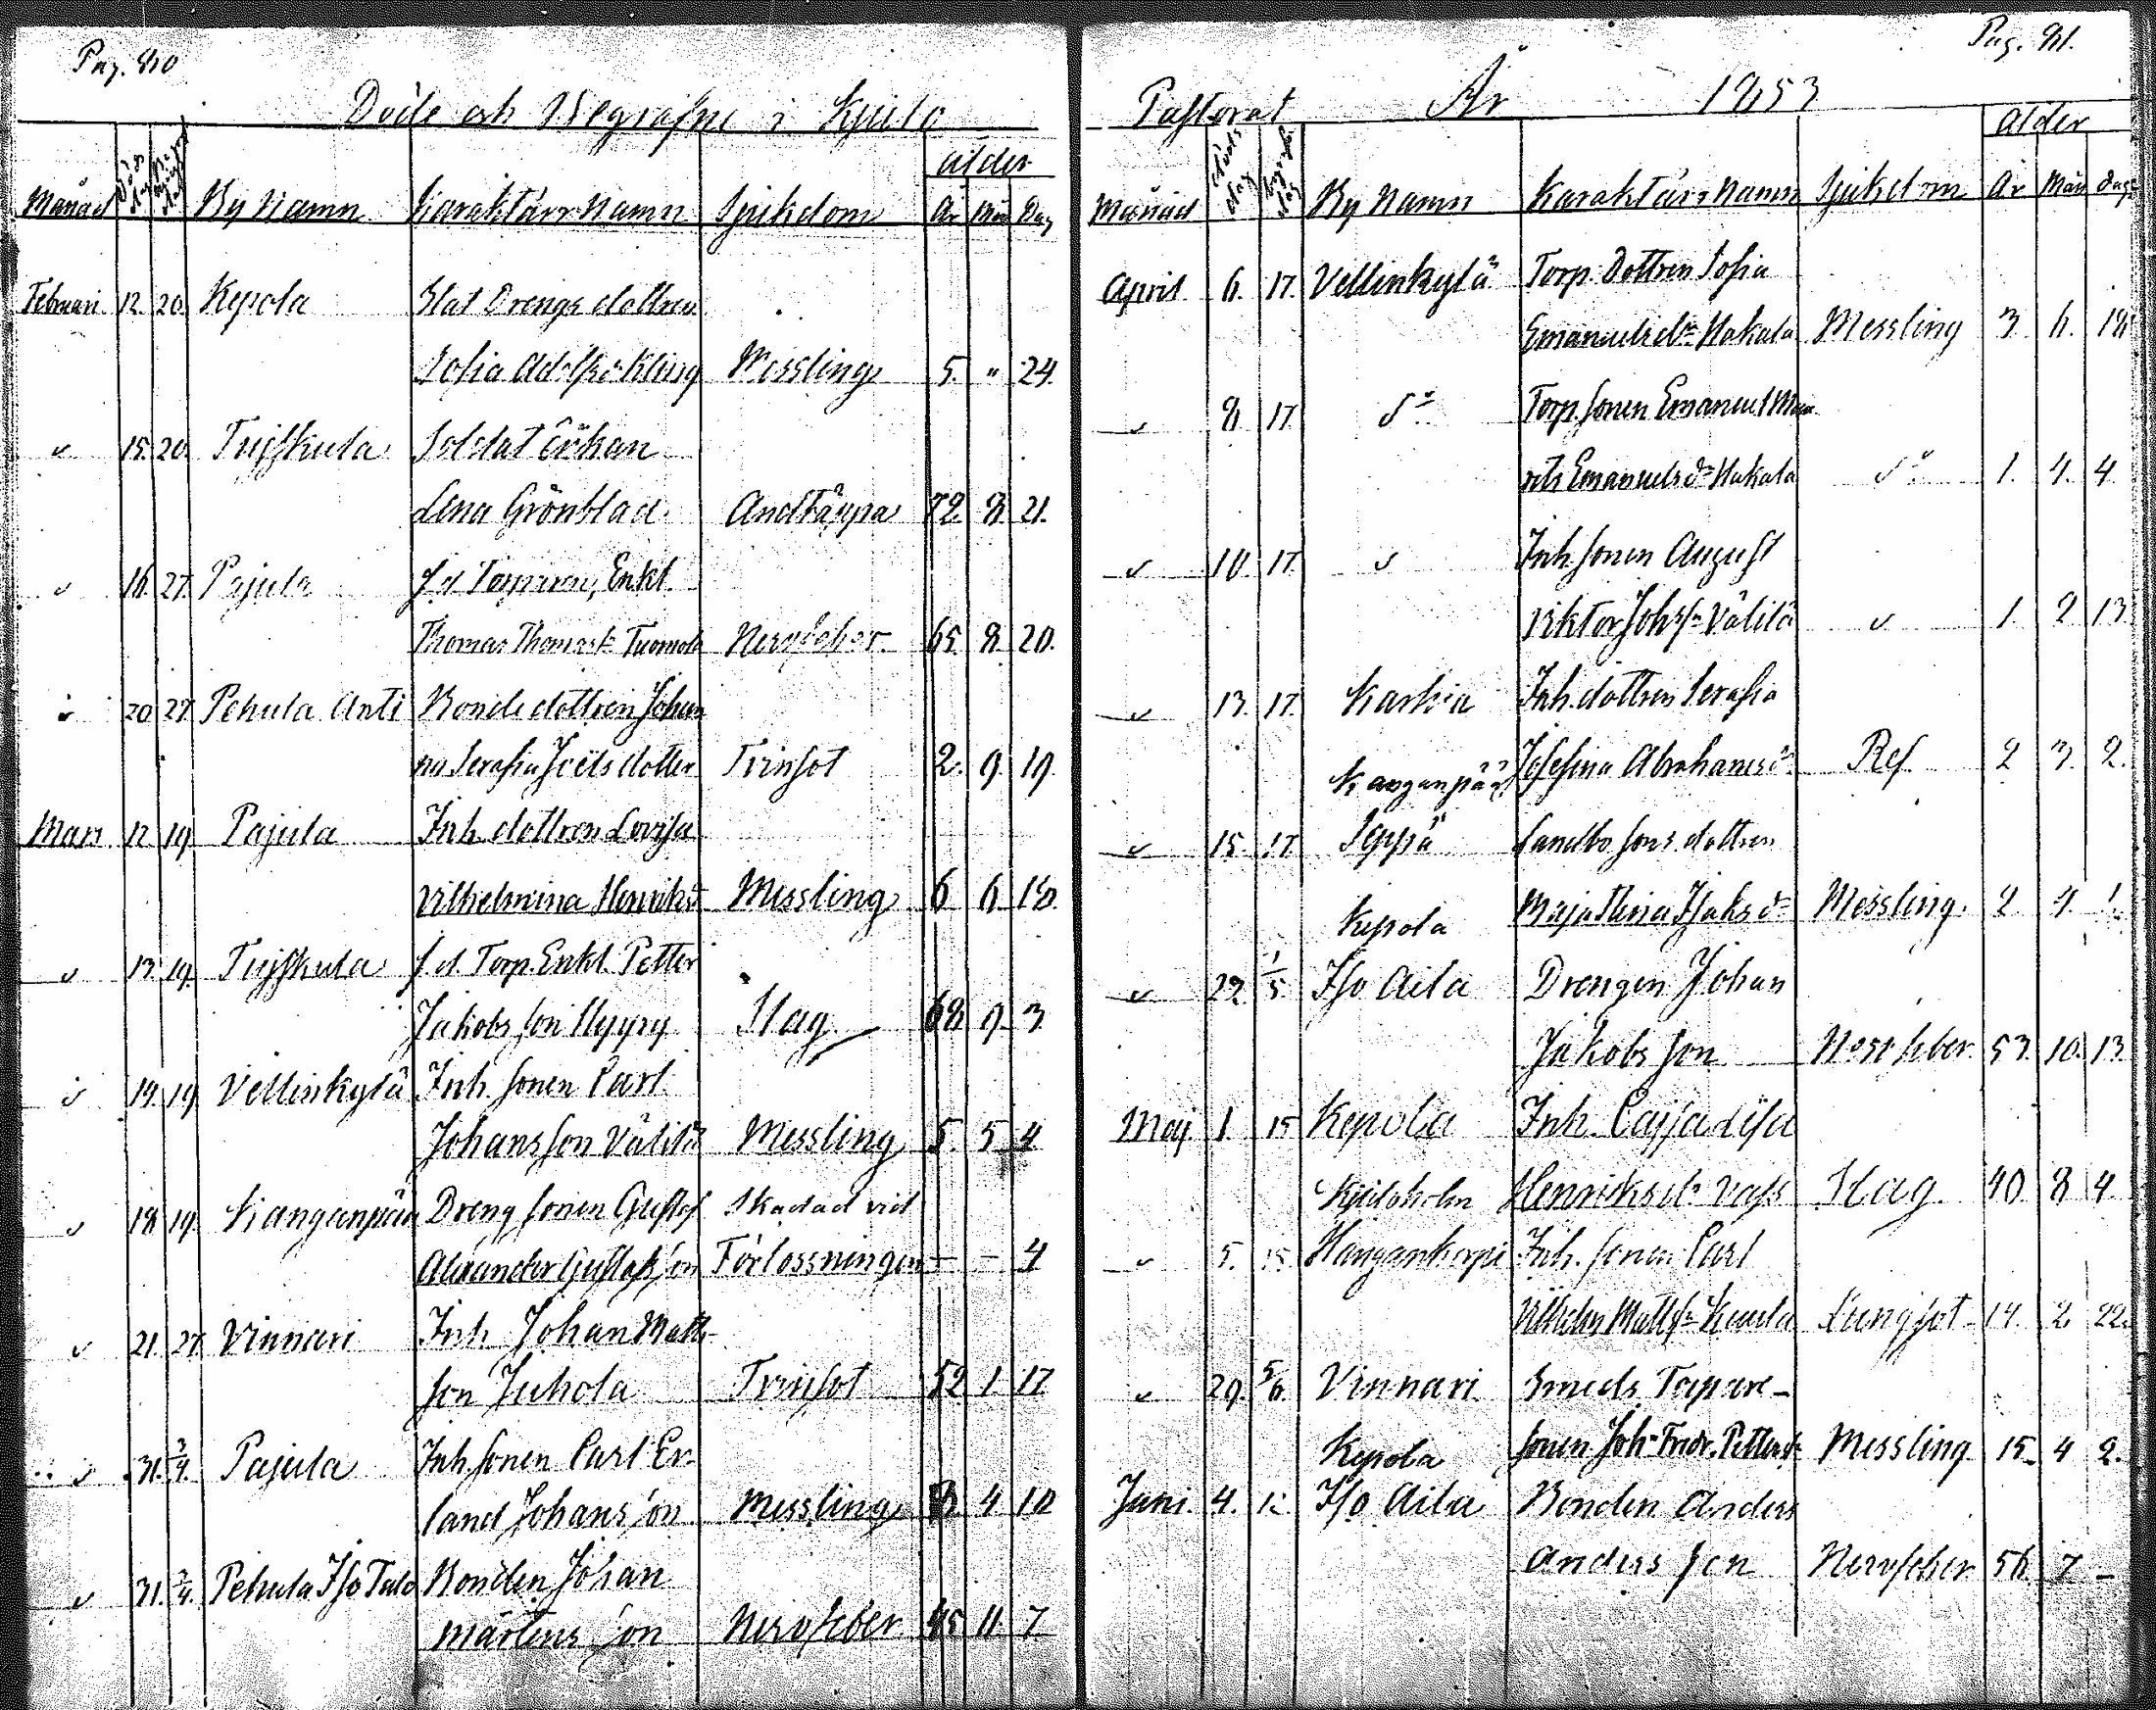 Pag. 80
Döde och Begrafne i Kjulo
Månad Döds dag Begrafn. dag By Namn Karaktär o Namn Sjukdom Ålder År Mån Dag
Februari 12. 20. Kepola Stat Drengs dottren
Sofia Adolfsd. Kling Messling 5. " 24.
" 15. 20. Tujskula Soldat Enkan
Lena Grönblad Andtäppa 72. 8. 21.
" 16. 27. Pajula f.d. Torparen, Enkl.
Thomas Thomass. Tuomola Nervfeber 65. 8. 20.
" 20. 27. Pehula Anti Bonde dottren Johan
na Serafia Joëlsdotter Tvinsot 2. 9. 19.
Mars 12. 19. Pajula Inh. dottren Lovisa
Vilhelmina Henriksd. Messling 6 6. 18.
" 13. 19. Tujskula f.d. Torp. Enkl. Petter
Jakobsson Nyyry Slag 68. 9. 3.
" 14. 19. Vellinkylä Inh. sonen Carl
Johansson Välilä Messling 5. 5 4
" 18. 19. Kanganpää Dreng sonen Gustaf
Alexander Gustafsson Skadad vid Förlossningen – – 4
" 21. 27. Vinnari Inh. Johan Matts-
son Juhola Tvinsot 52. 1. 17.
" 31. 3/4. Pajula Inh. sonen Carl Er-
land Johansson Messling 4. 10
" 31. 3/4. Pehula Iso Tulo Bonden Johan
Mårtensson Nervfeber 45 11. 7.
Pag. 81.
Pastorat År 1853
Månad Döds dag Begrafn. dag By Namn Karaktär o Namn Sjukdom Ålder År Mån Dag
April 6. 17. Vellinkylä Torp. Dottren Sofia
Emanuelsdr Hakala Messling 3. 6. 18
" 8 17. do Torp. sonen Emanuel Mau
rits Emanuelss. Hakala do 1. 4. 4
" 10 17. " Inh. sonen August
Viktor Johss. Välilä " 1. 2 13.
" 13. 17. Karhia Inh. dottren Serafia
Kanganpää Josefina Abrahamsd. Ref. 2 3. 2.
" 15. 17. Seppä Landbo sons dottren
Kepola Maja Stina Isaksdr Messling. 2 4. 1.
" 22. 1/5. Iso Aila Drengen Johan
Jakobsson Nervfeber 53. 10. 13.
Maj 1. 15 Kepola Inh. Cajsa Lisa
Kjuloholm Henriksdr Vass Slag 40 8 4
" 5. 15 Hangankorpi Inh. sonen Carl
Vilhelm Mattss. Kuula Lungsot 14. 2. 22.
" 29. 5/6. Vinnari Smeds Torpare-
Kepola sonen Joh. Fredr. Petterss. Messling 15. 4 2.
Juni 4. 12 Iso Aila Bonden Anders
Andersson Nervfeber 56. 7 –